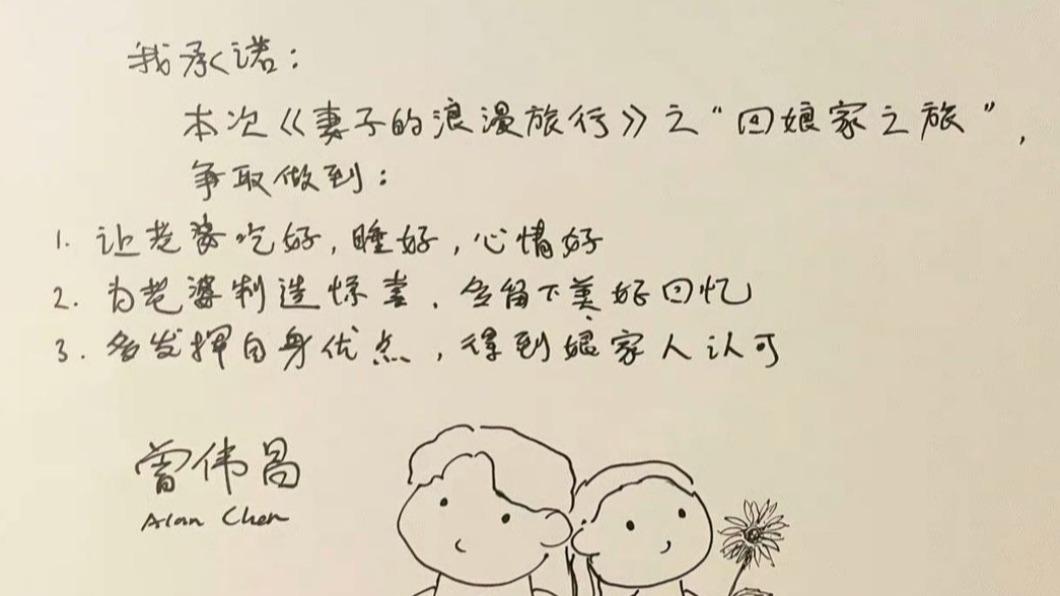 我承诺:
本次《妻子的浪漫旅行》之“回娘家之旅”,
争取做到:
1. 让老婆吃好,睡好,心情好
2. 为老婆制造惊喜,多留下美好回忆
3. 多发挥自身优点,得到娘家人认可
曾伟昌
Alan Chen